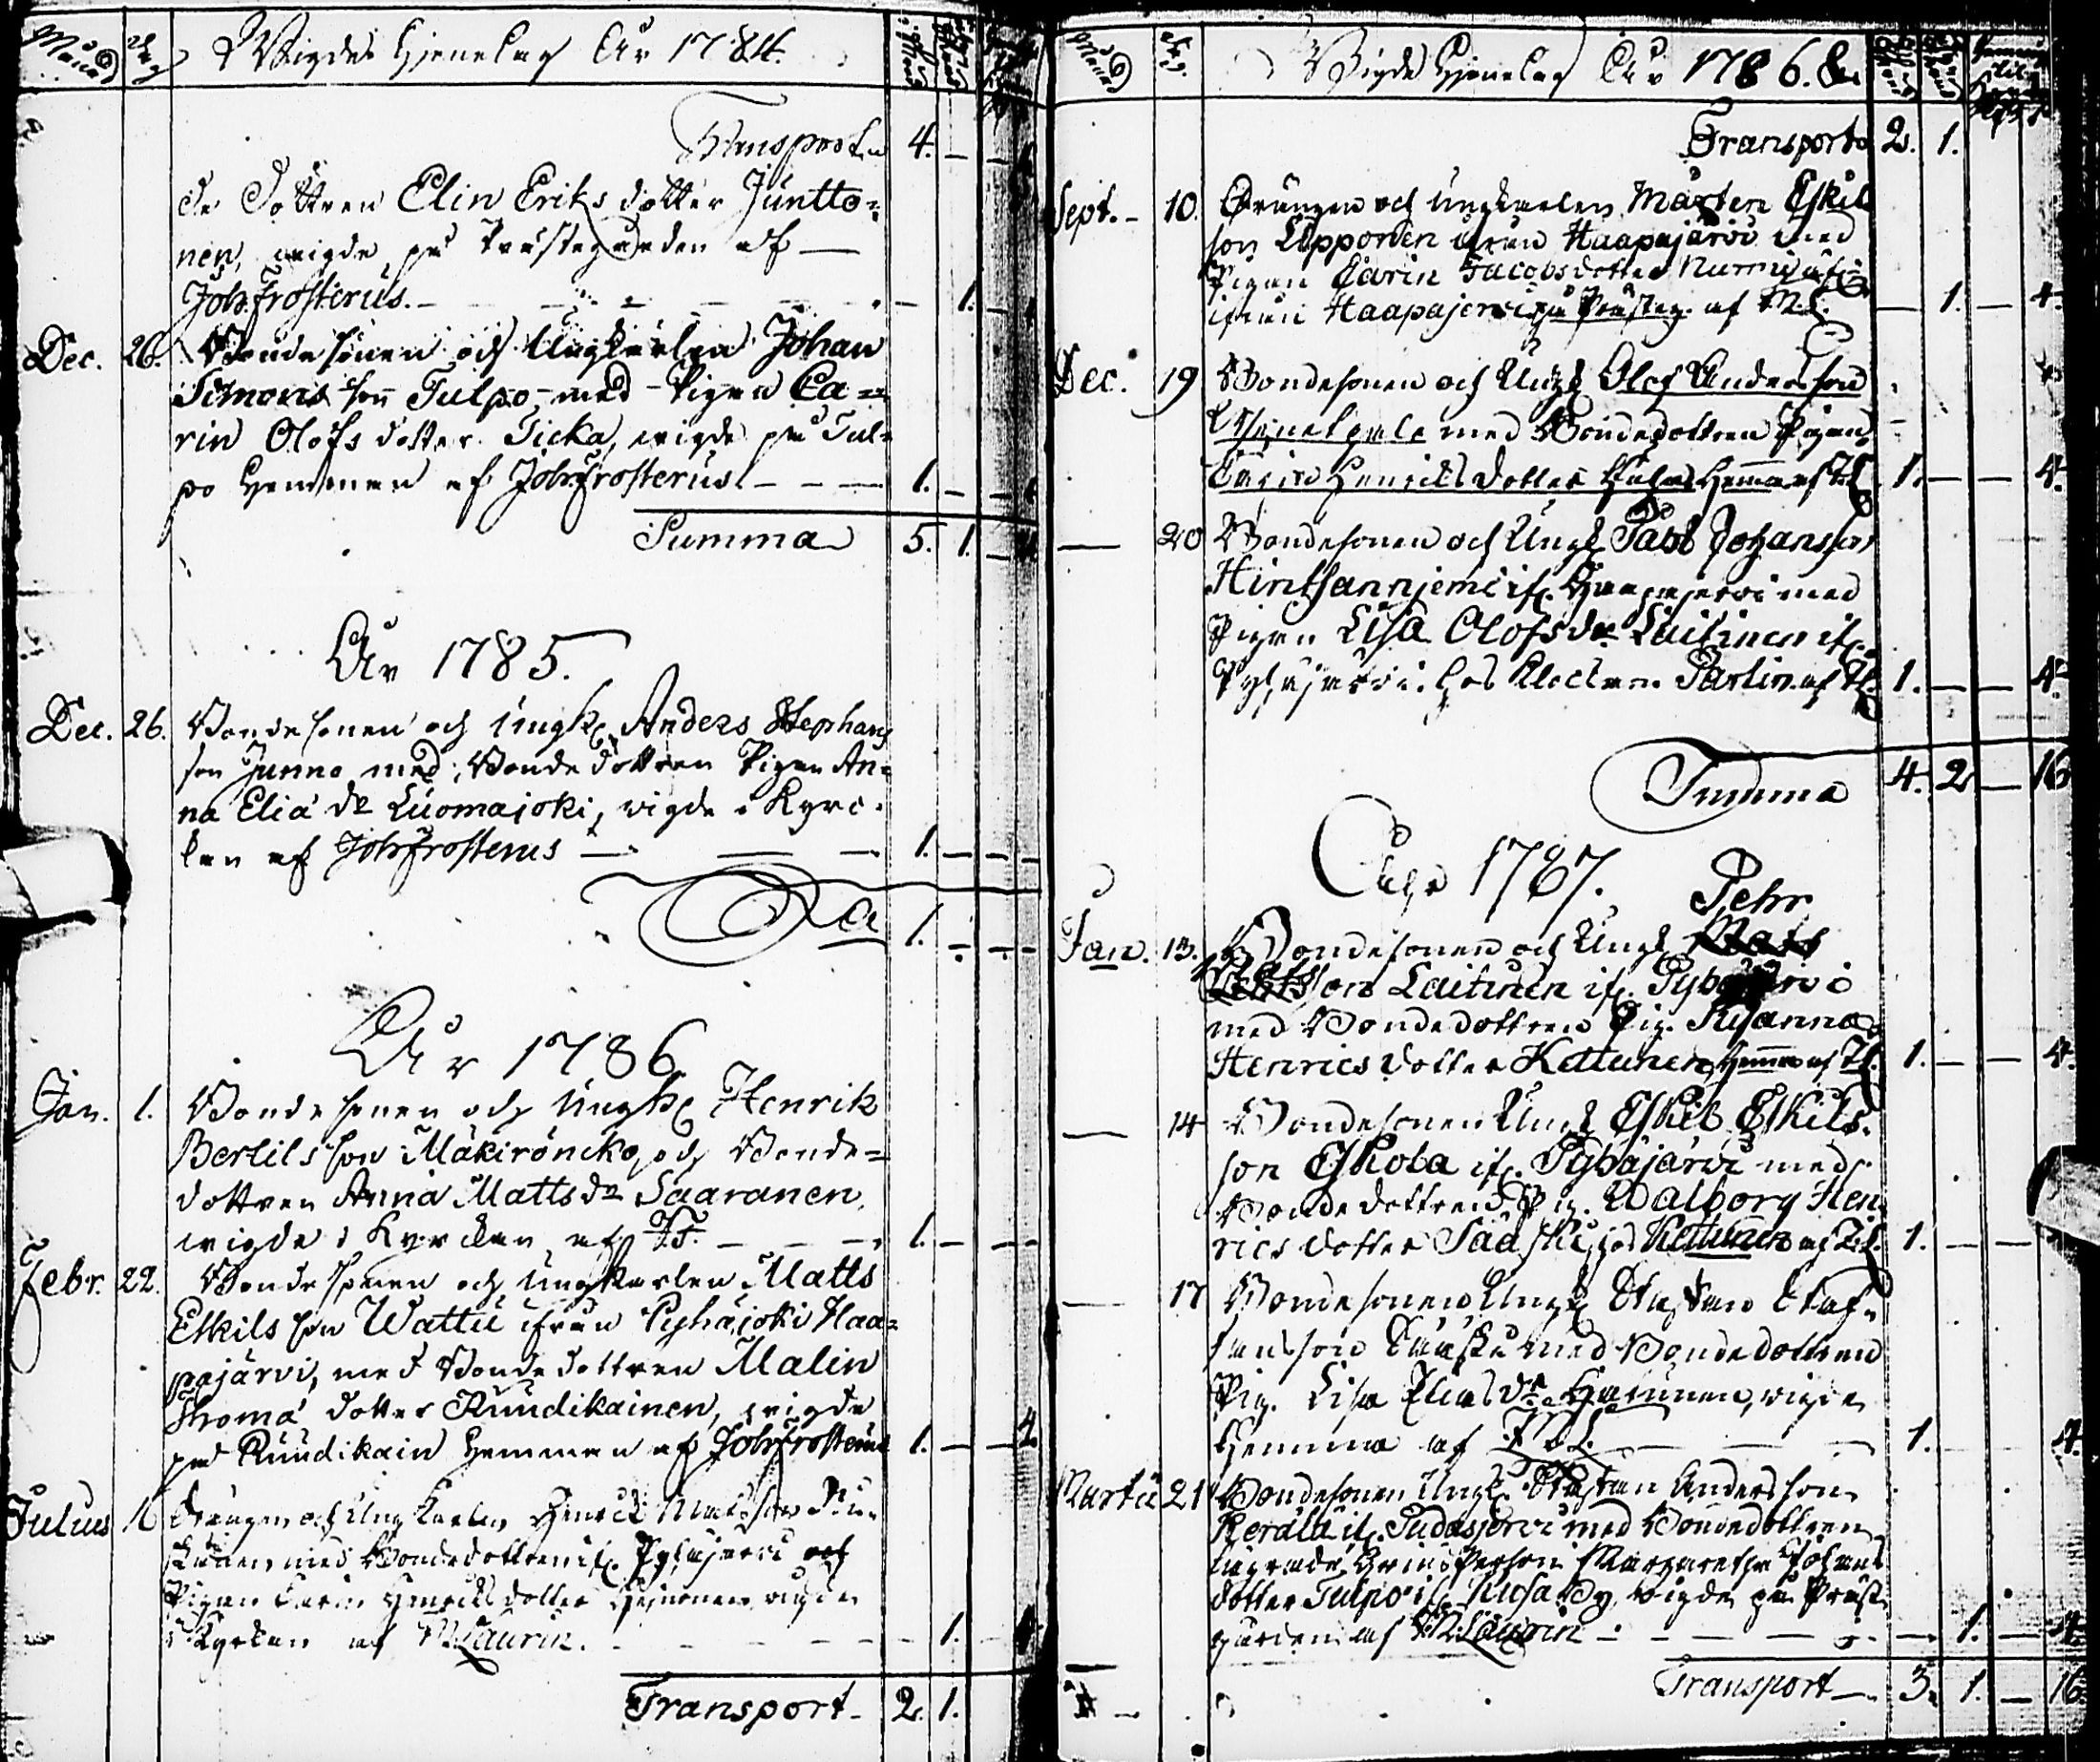 Månad Dag Wigde Hjonelag År 1784.
Transport 4. — —
de Dottren Elin Eriks dotter Juntto=
nen, wigde på Prästegården af —
Joh: Frosterus. — — — — 1.
Dec. 26. Bondesonen och Ungkarlen Johan
Simons son Tulpo, med Pigan Ca=
rin Olofs dotter Ticka, wigde på Tul=
po Hemman af Joh: Frosterus. — — — 1. —
Summa 5. 1. —
År 1785.
Dec. 26. Bondesonen och Ungk: Anders Stephans
son Junno med Bonde dottren Pigan An=
na Elia dr Luomajoki, wigde i Kyrc=
kan af Joh: Frosterus — — — 1. — — —
Sa 1. — — —
År 1786
Jan. 1. Bonde sonen och Ungk: Henrik
Bertils son Mäkiröncko, och Bonde=
dottren Anna Matts dr Saaranen,
wigde i Kyrckan af J.F. — — — 1. — — —
Febr. 22. Bonde sonen och Ungkarlen Matts
Eskils son Wattu ifrån Pyhäjoki Haa=
pajärvi, med Bonde dottren Malin
Thoma dotter Ruudikainen, wigde
på Ruudikain Hemman af Joh: Frosterus 1. — — 4
Julius 16 Drängen och Ungkarlen Henrick Mats son
med Bondedottren if: Pyhäjervi
Pigan Carin Henricks dotter wigde
i Kyrkan af M. Laurin. — — — — 1.
Transport — 2. 1.
Månad Dag. Wigde Hjonelag År 1786.
Transport 2. 1.
Sept. — 10. Drängen och Ungkarlen Mårten Eskils
son Lipponen ifrån Haapajärvi med
Pigan Carin Jacobsdotter
ifrån Haapajervi på Prästeg. af M.L. — 1. — 4.
Dec. 19 Bondesonen och Ungk: Olof Andersson
med Bondedottren Pigan
Carin Henricks dotter Hemma af ML 1. — — 4.
— 20 Bondesonen och Ungk: Påvl Johansson
Hintsanniemi if: Haapajervi med
Pigan Lisa Olofs dr Laitinen if:
Pyhäjärvi. hos Klockaren Partin af ML. 1. — — 4.
Summa 4. 2 — 16
Åhr 1787.
Pehr
Jan. 13. Bondesonen och Ungk: Mats
Mats
Pehrsson Laitinen if. Pyhäjärvi
med Bondedottren Pig. Susanna
Henrics dotter Kettunen, Hemma af ML. 1. — — 4.
— 14 Bondesonen Ungk: Eskil Eskils=
son Eskola if. Pyhäjärvi med
Bonde dottren Pig. Walborg Hen=
rics dotter Sääski, hos Kettunen af ML. 1. — —
— 17 Bondesonen Ungk: Staffan Staf=
fansson Sääski med Bondedottren
Pig. Lisa Elias dr Hatunen, wigde
Hemma af M.L. — — — 1. 4.
Martii 21 Bondesonen Ungk: Staffan Andersson
Kerälä if. Pudasjervi med Bondedottren
Lägrade Qwins Person Margaretha Johans
dotter Tulpo if. Kusa By, wigde på Präst=
gården af M. Laurin — — — — — 1. — 4
Transport — 3. 1. — 16